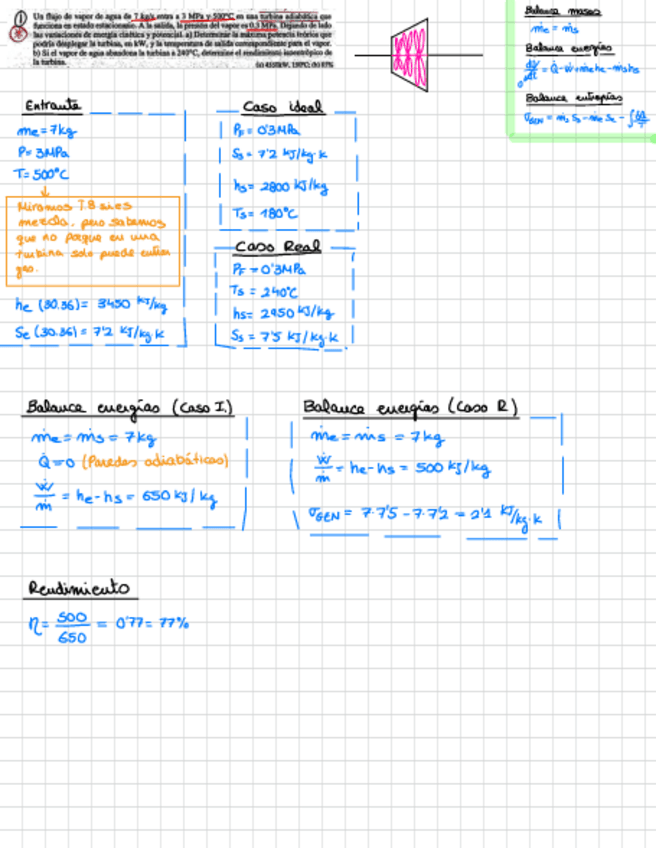 ① Un flujo de vapor de agua de 7 kg/s entra a 3 MPa y 500ºC en una turbina adiabática que
funciona en estado estacionario. A la salida, la presión del vapor es 0.3 MPa. Dejando de lado
las variaciones de energía cinética y potencial. a) Determinar la máxima potencia teórica que
podría desplegar la turbina, en kW, y la temperatura de salida correspondiente para el vapor.
b) Si el vapor de agua abandona la turbina a 240ºC, determine el rendimiento isoentrópico de
la turbina.
Balance masas
ṁe = ṁs
Balance energías
dU/dt = Q̇ - Ẇ + ṁehe - ṁshs
0
Balance entropías
σGEN = ṁs Ss - ṁe Se - ∫
Entrante
me = 7kg
P = 3MPa
T = 500ºC
↓
Miramos T.8 si es
mezcla, pero sabemos
que no porque en una
turbina solo puede entrar
gas.
he (30.36) = 3450 kJ/kg
Se (30.36) = 7'2 kJ/kg·k
Caso ideal
PF = 0'3MPa
Ss = 7'2 kJ/kg·k
hs = 2800 kJ/kg
Ts = 180ºC
Caso Real
PF = 0'3MPa
Ts = 240ºC
hs = 2950 kJ/kg
Ss = 7'5 kJ/kg·k
Balance energías (Caso I.)
ṁe = ṁs = 7kg
Q̇ = 0 (Paredes adiabáticas)
Ẇ/ṁ = he - hs = 650 kJ/kg
Balance energías (Caso R)
ṁe = ṁs = 7kg
Ẇ/ṁ = he - hs = 500 kJ/kg
σGEN = 7·7'5 - 7·7'2 = 2'1 kJ/kg·k
Rendimiento
η = 500/650 = 0'77 = 77%